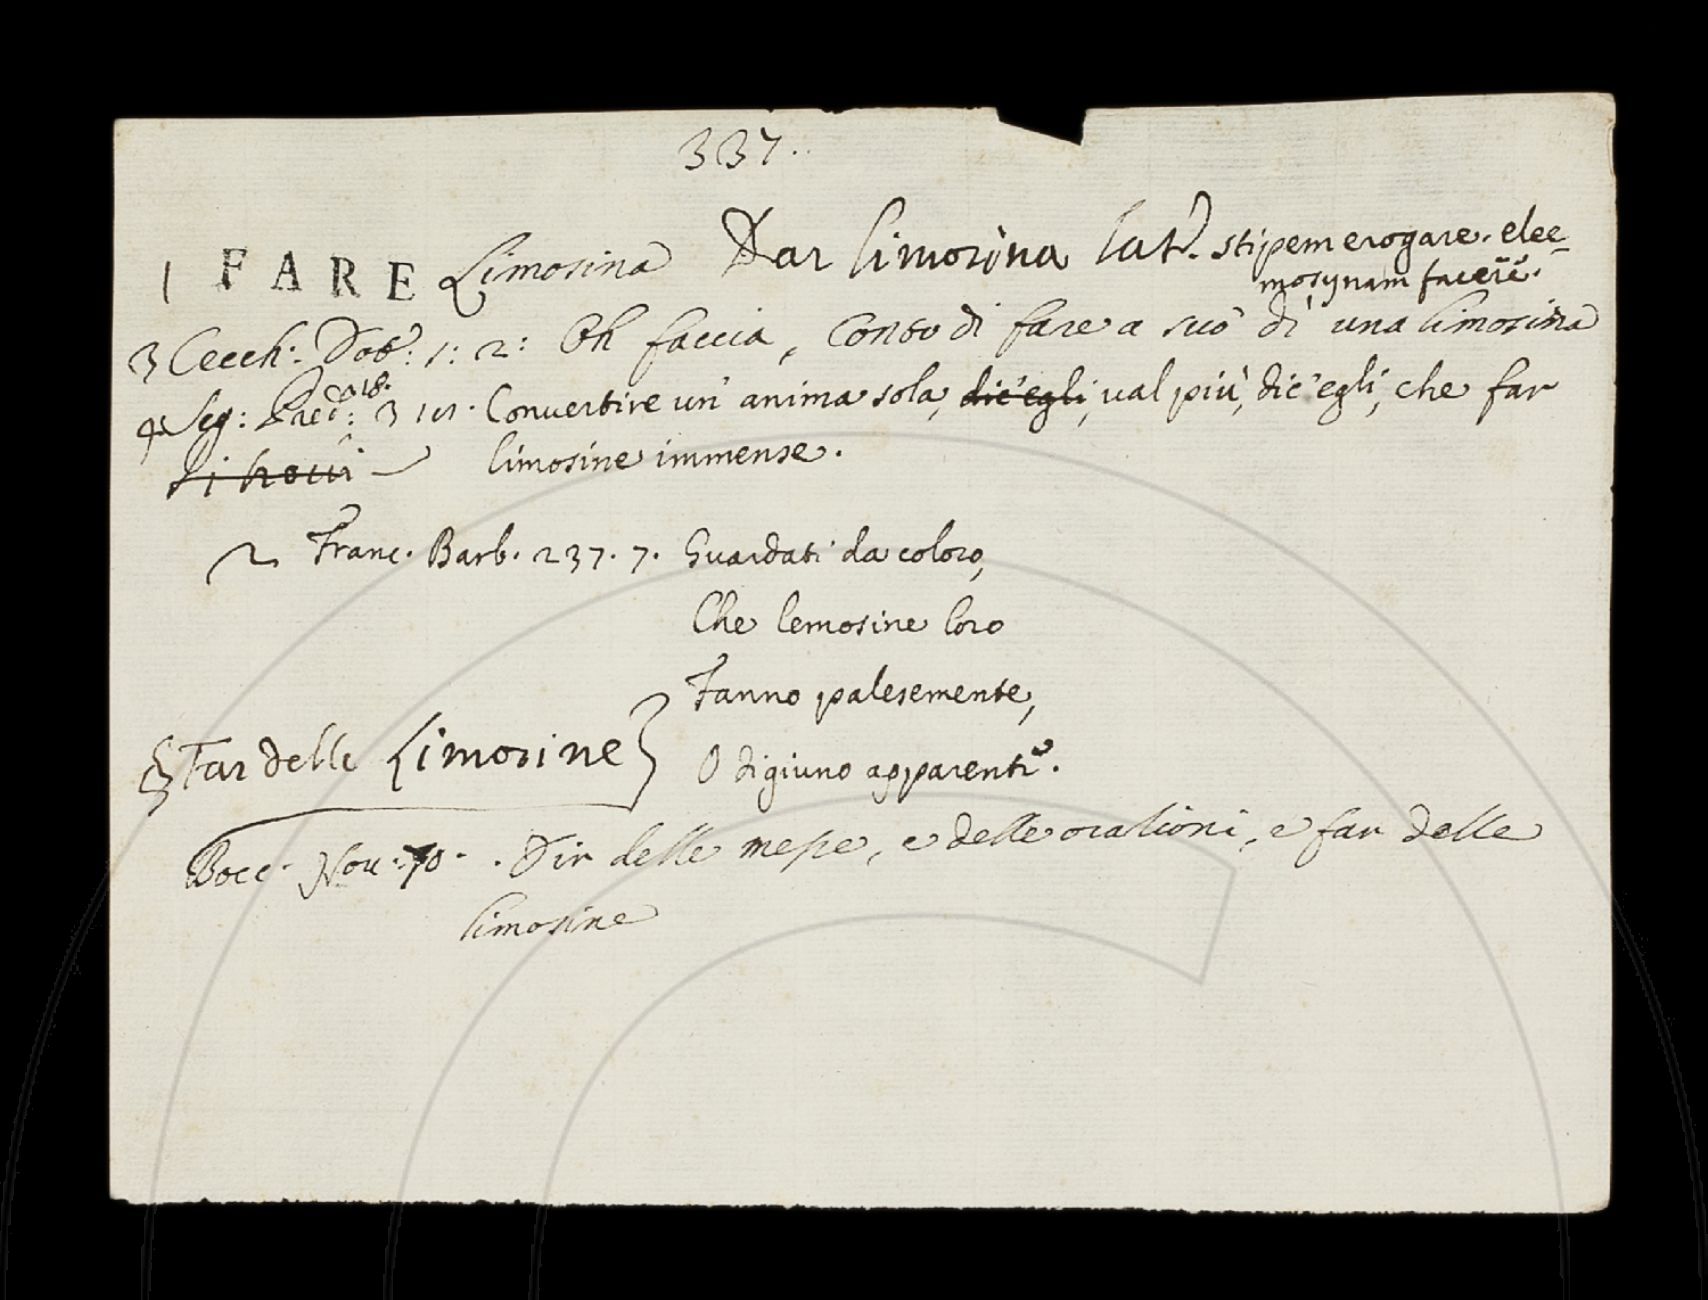 337.
1 FARE Limosina Dar limosina lat. stipem erogare. elee-
mosynam facere.
3 Cecch: Dot: 1: 2: Oh faccia, Conto di fare a suo dì una limosina
4 Seg: Pred: 3 18. Convertire un' anima sola, dic' egli, val più, dic' egli, che far
Si trovi limosine immense.
2 Franc. Barb. 237. 7. Guardati da coloro,
Che lemosine loro
Fanno palesemente,
Far delle Limosine O digiuno apparente.
Bocc. Nov. 70. Dir delle messe, e delle orationi, e far delle
limosine